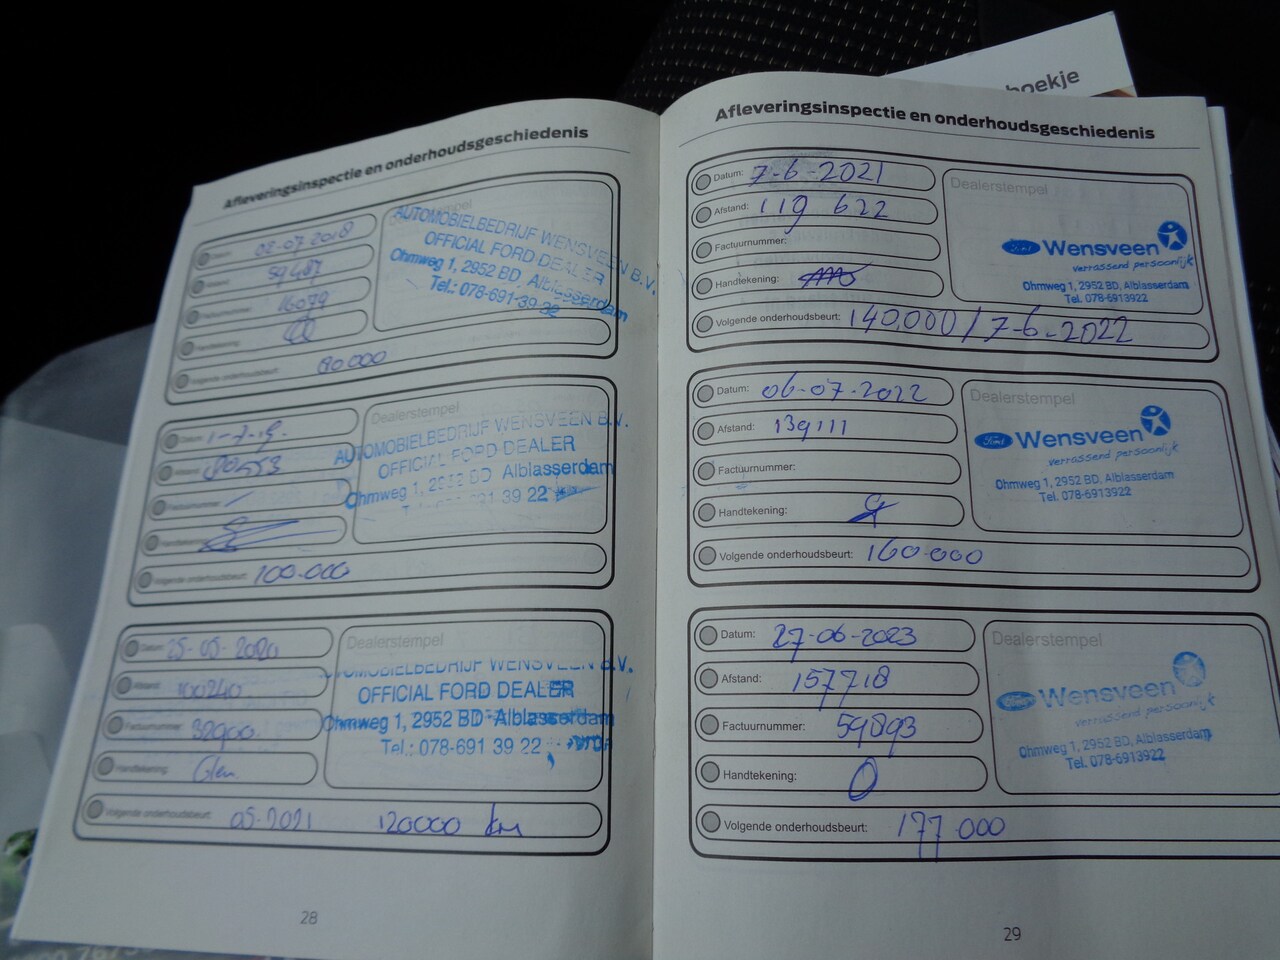 Afleveringsinspectie en onderhoudsgeschiedenis
Datum: 02-07 2018
59487
Factuurnummer: 16079
Handtekening:
Volgende onderhoudsbeurt: 80.000
AUTOMOBIELBEDRIJF WENSVEEN B.V.
OFFICIAL FORD DEALER
Ohmweg 1, 2952 BD, Alblasserdam
Tel.: 078-691-39-22
Datum: 1-7-19.
Afstand: 80553
Factuurnummer: /
Handtekening:
Volgende onderhoudsbeurt: 100.000
Dealerstempel
AUTOMOBIELBEDRIJF WENSVEEN B.V.
OFFICIAL FORD DEALER
Ohmweg 1, 2952 BD Alblasserdam
691 39 22
Datum: 25-05-2020
Afstand: 100240
Factuurnummer: 32900
Handtekening:
Volgende onderhoudsbeurt: 05-2021 120000 km
Dealerstempel
AUTOMOBIELBEDRIJF WENSVEEN B.V.
OFFICIAL FORD DEALER
Ohmweg 1, 2952 BD Alblasserdam
Tel.: 078-691 39 22
28
boekje
Afleveringsinspectie en onderhoudsgeschiedenis
Datum: 7-6-2021
Afstand: 119 622
Factuurnummer:
Handtekening:
Volgende onderhoudsbeurt: 140.000 / 7-6-2022
Dealerstempel
Ford Wensveen
verrassend persoonlijk
Ohmweg 1, 2952 BD, Alblasserdam
Tel. 078-6913922
Datum: 06-07-2022
Afstand: 139111
Factuurnummer:
Handtekening:
Volgende onderhoudsbeurt: 160.000
Dealerstempel
Ford Wensveen
verrassend persoonlijk
Ohmweg 1, 2952 BD, Alblasserdam
Tel. 078-6913922
Datum: 27-06-2023
Afstand: 157718
Factuurnummer: 59893
Handtekening:
Volgende onderhoudsbeurt: 177.000
Dealerstempel
Ford Wensveen
verrassend persoonlijk
Ohmweg 1, 2952 BD, Alblasserdam
Tel. 078-6913922
29